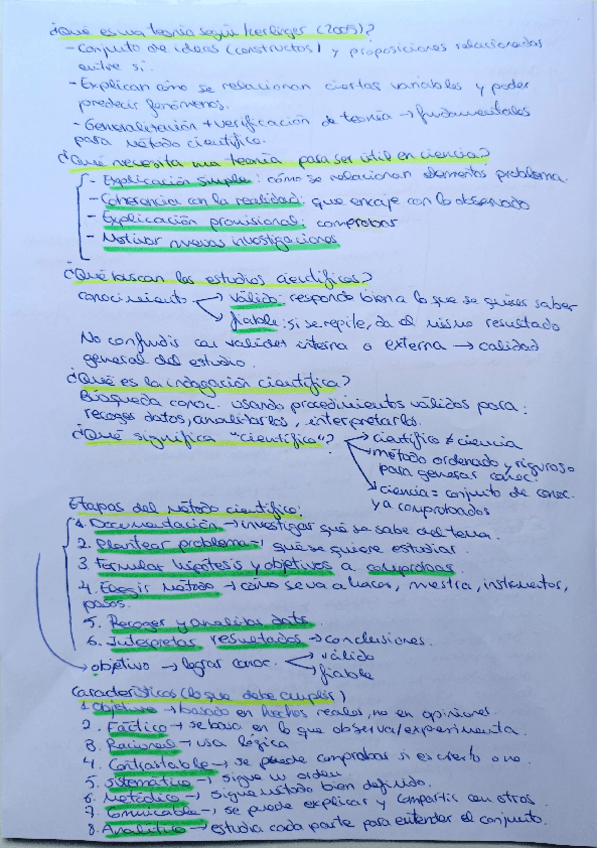 ¿Qué es una teoría según Kerlinger (2005)?
- Conjunto de ideas (constructos) y proposiciones relacionadas
entre sí.
- Explican cómo se relacionan ciertas variables y poder
predecir fenómenos.
- Generalización + verificación de teoría → fundamentales
para método científico.
¿Qué necesita una teoría para ser útil en ciencia?
- Explicación simple: cómo se relacionan elementos problema.
- Coherencia con la realidad: que encaje con lo observado
- Explicación provisional: comprobar
- Motivar nuevas investigaciones
¿Qué buscan los estudios científicos?
conocimiento → válido: responde bien a lo que se quiere saber
→ fiable: si se repite, da el mismo resultado
No confundir con validez interna o externa → calidad
general del estudio.
¿Qué es la indagación científica?
Búsqueda conoc. usando procedimientos válidos para:
recoger datos, analizarlos, interpretarlos.
¿Qué significa "científico"? → científico ≠ ciencia
→ método ordenado y riguroso
para generar conoc.
→ ciencia = conjunto de conoc.
ya comprobados
Etapas del método científico:
1. Documentación → investigar qué se sabe del tema.
2. Plantear problema → qué se quiere estudiar.
3. Formular hipótesis y objetivos a comprobar.
4. Elegir método → cómo se va a hacer, muestra, instrumentos,
pasos.
5. Recoger y analizar datos.
6. Interpretar resultados → conclusiones.
→ objetivo → lograr conoc. → válido
→ fiable
Características (lo que debe cumplir)
1. Objetivo → basado en hechos reales, no en opiniones.
2. Fáctico → se basa en lo que observa/experimenta.
3. Racional → usa lógica
4. Contrastable → se puede comprobar si es cierto o no.
5. Sistemático → sigue un orden
6. Metódico → sigue método bien definido.
7. Comunicable → se puede explicar y compartir con otros.
8. Analítico → estudia cada parte para entender el conjunto.